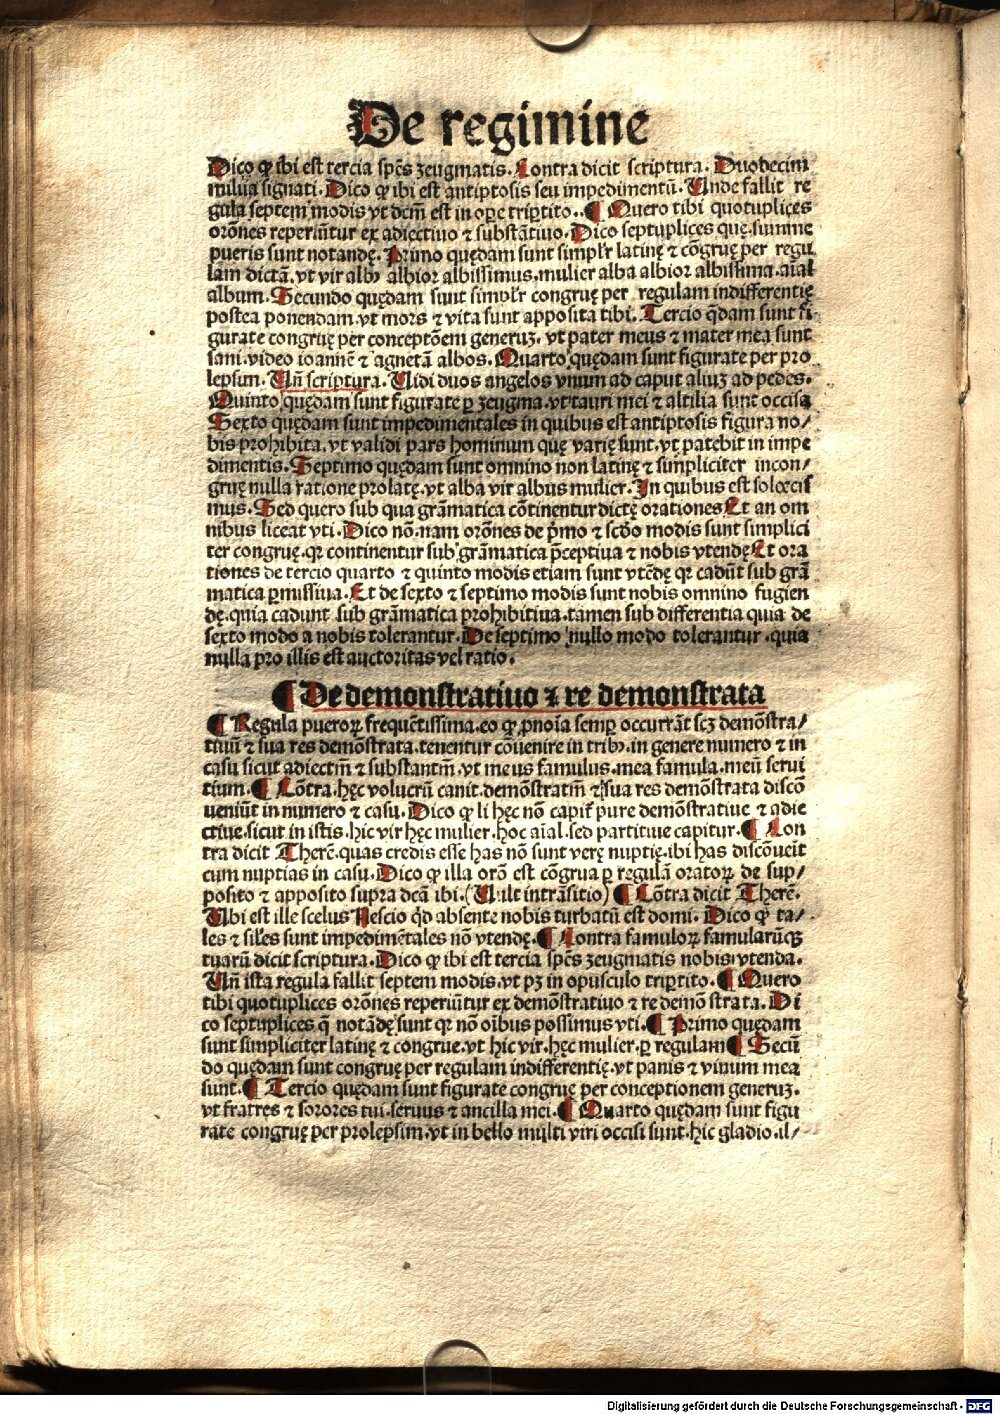 De regimine
Dico ꝙ ibi est tercia spēs zeugmatis. Contra dicit scriptura. Duodecim
milia signati. Dico ꝙ ibi est antiptosis seu impedimentū. Unde fallit re
gula septem modis vt dcm̄ est in oꝑe tripertito. ¶ Quero tibi quotuplices
orōnes reperiūtur ex adiectiuo ⁊ substātiuo. Dico septuplices quę summe
pueris sunt notandę. Primo quędam sunt simplr̄ latinę ⁊ cōgruę per regu
lam dictā. vt vir albꝰ albior albissimus. mulier alba albior albissima. aīal
album. Secundo quędam sunt simplr̄ congruę per regulam indifferentię
postea ponendam. vt mors ⁊ vita sunt apposita tibi. Tercio q̄dam sunt fi
gurate congruę per conceptōem generuꝫ. vt pater meus ⁊ mater mea sunt
sani. video ioannē ⁊ agnetā albos. Quarto quędam sunt figurate per pro
lepsun. Un̄ scriptura. Uidi duos angelos vnum ad caput aliuꝫ ad pedes.
Quinto quędam sunt figurate ꝑ zeugma. vt tauri mei ⁊ altilia sunt occisa
Sexto quędam sunt impedimentales in quibus est antiptosis figura no/
bis prohibita. vt validi pars hominum quę varię sunt. vt patebit in impe
dimentis. Septimo quędam sunt omnino non latinę ⁊ simpliciter incon/
gruę nulla ratione prolatę. vt alba vir albus mulier. In quibus est solœcis
mus. Sed quero sub qua grāmatica cōtinentur dictę orationes Et an om
nibus liceat vti. Dico nō. nam orōnes de p̄mo ⁊ scd̄o modis sunt simplici
ter congruę. qꝛ continentur sub grāmatica p̄ceptiua ⁊ nobis vtendę Et ora
tiones de tercio quarto ⁊ quinto modis etiam sunt vtēdę qꝛ cadūt sub grā
matica ꝑmissiua. Et de sexto ⁊ septimo modis sunt nobis omnino fugien
dę. quia cadunt sub grāmatica prohibitiua. tamen sub differentia quia de
sexto modo a nobis tolerantur. De septimo nullo modo tolerantur. quia
nulla pro illis est auctoritas vel ratio.
¶ De demonstratiuo ⁊ re demonstrata
¶ Regula pueroꝝ frequētissima. eo ꝙ ꝓnoīa semꝑ occurrāt scꝫ demōstra/
tiuū ⁊ sua res demōstrata. tenentur cōuenire in tribꝰ. in genere numero ⁊ in
casu sicut adiectm̄ ⁊ substantm̄. vt meus famulus. mea famula. meū serui
tium. ¶ Cōtra. hęc volucrū canit. demōstratm̄ ⁊ sua res demōstrata discō
ueniūt in numero ⁊ casu. Dico ꝙ li hęc nō capit᷑ pure demōstratiue ⁊ adie
ctiue. sicut in istis. hic vir hęc mulier. hoc aīal. sed partitiue capitur. ¶ Con
tra dicit Therē. quas credis esse has nō sunt verę nuptię. ibi has discōueīt
cum nuptias in casu. Dico ꝙ illa orō est cōgrua ꝑ regulā oratoꝝ de sup/
posito ⁊ apposito supra dcā ibi. (Uult intrāsitio) ¶ Cōtra dicit Therē.
Ubi est ille scelus Nescio qd̄ absente nobis turbatū est domi. Dico ꝙ ta/
les ⁊ siles sunt impedimētales nō vtendę. ¶ Contra famuloꝝ famularūqꝫ
tuarū dicit scriptura. Dico ꝙ ibi est tercia spēs zeugmatis nobis vtenda.
Un̄ ista regula fallit septem modis. vt pꝫ in opusculo tripertito. ¶ Quero
tibi quotuplices orōnes reperiūtur ex demōstratiuo ⁊ re demōstrata. Di
co septuplices q̄ notādę sunt qꝛ nō oībus possimus vti. ¶ Primo quędam
sunt simpliciter latinę ⁊ congrue. vt hic vir. hęc mulier. ꝑ regulam ¶ Secū
do quędam sunt congruę per regulam indifferentię. vt panis ⁊ vinum mea
sunt. ¶ Tercio quędam sunt figurate congruę per conceptionem generuꝫ.
vt fratres ⁊ sorores tui. seruus ⁊ ancilla mei. ¶ Quarto quędam sunt figu
rate congruę per prolepsim. vt in bello multi viri occisi sunt. hic gladio. il/
Digitalisierung gefördert durch die Deutsche Forschungsgemeinschaft - DFG